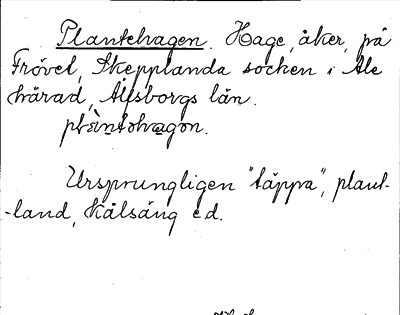 Plantehagen. Hage, åker, på
Frövet, Skepplanda socken i Ale
härad, Älfsborgs län.
plàntəhagən.
Ursprungligen "täppa", plant-
-land, kålsäng e.d.